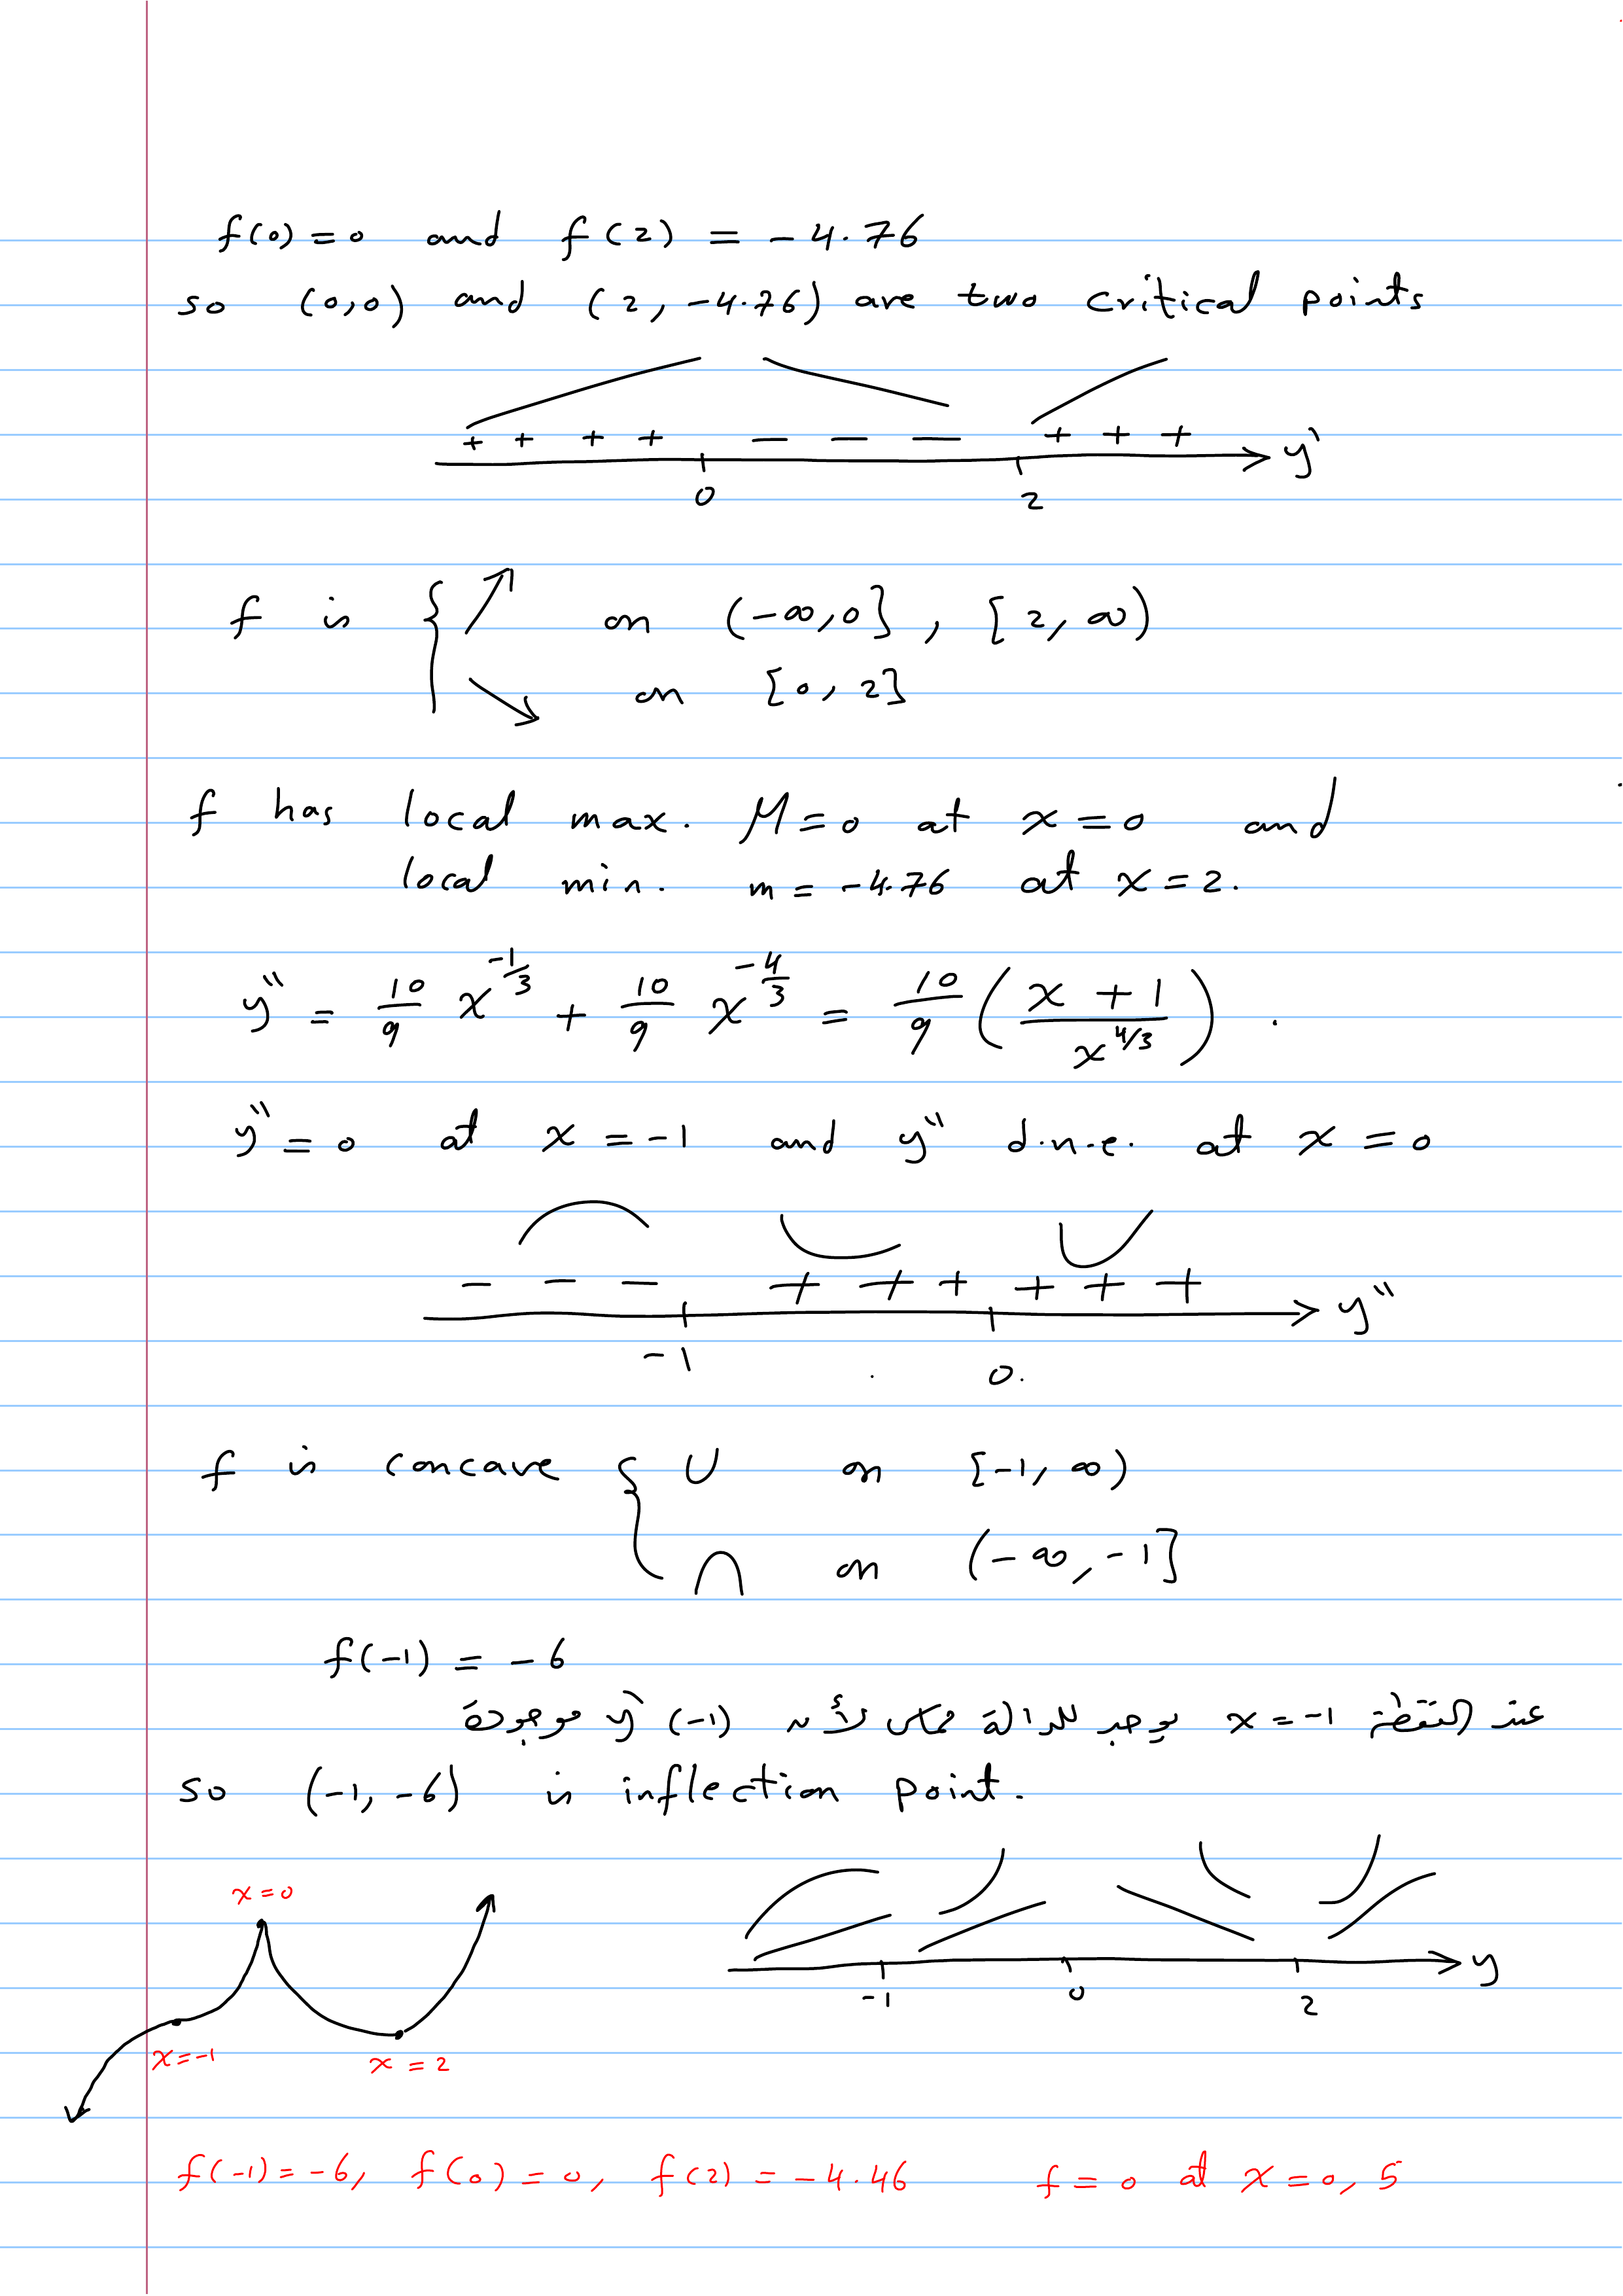 f(0) = 0 and f(2) = -4.76
so (0,0) and (2, -4.76) are two critical points
+ + + + — — — + + + y'
0 2
f is { ↗ on (-∞, 0], [2, ∞)
↘ on [0, 2]
f has local max. M = 0 at x = 0 and
local min. m = -4.76 at x = 2.
y'' = 10/9 x^(-1/3) + 10/9 x^(-4/3) = 10/9 ( (x + 1) / x^(4/3) ) .
y'' = 0 at x = -1 and y'' d.n.e. at x = 0
- - - + + + + + + y''
-1 0
f is concave { ∪ on [-1, ∞)
∩ on (-∞, -1]
f(-1) = -6
عند النقطة x = -1 يوجد للدالة مماس لأن y'(-1) موجودة
so (-1, -6) is inflection point.
x = 0
-1 0 2 y
x = -1
x = 2
f(-1) = -6, f(0) = 0, f(2) = -4.46 f = 0 at x = 0, 5